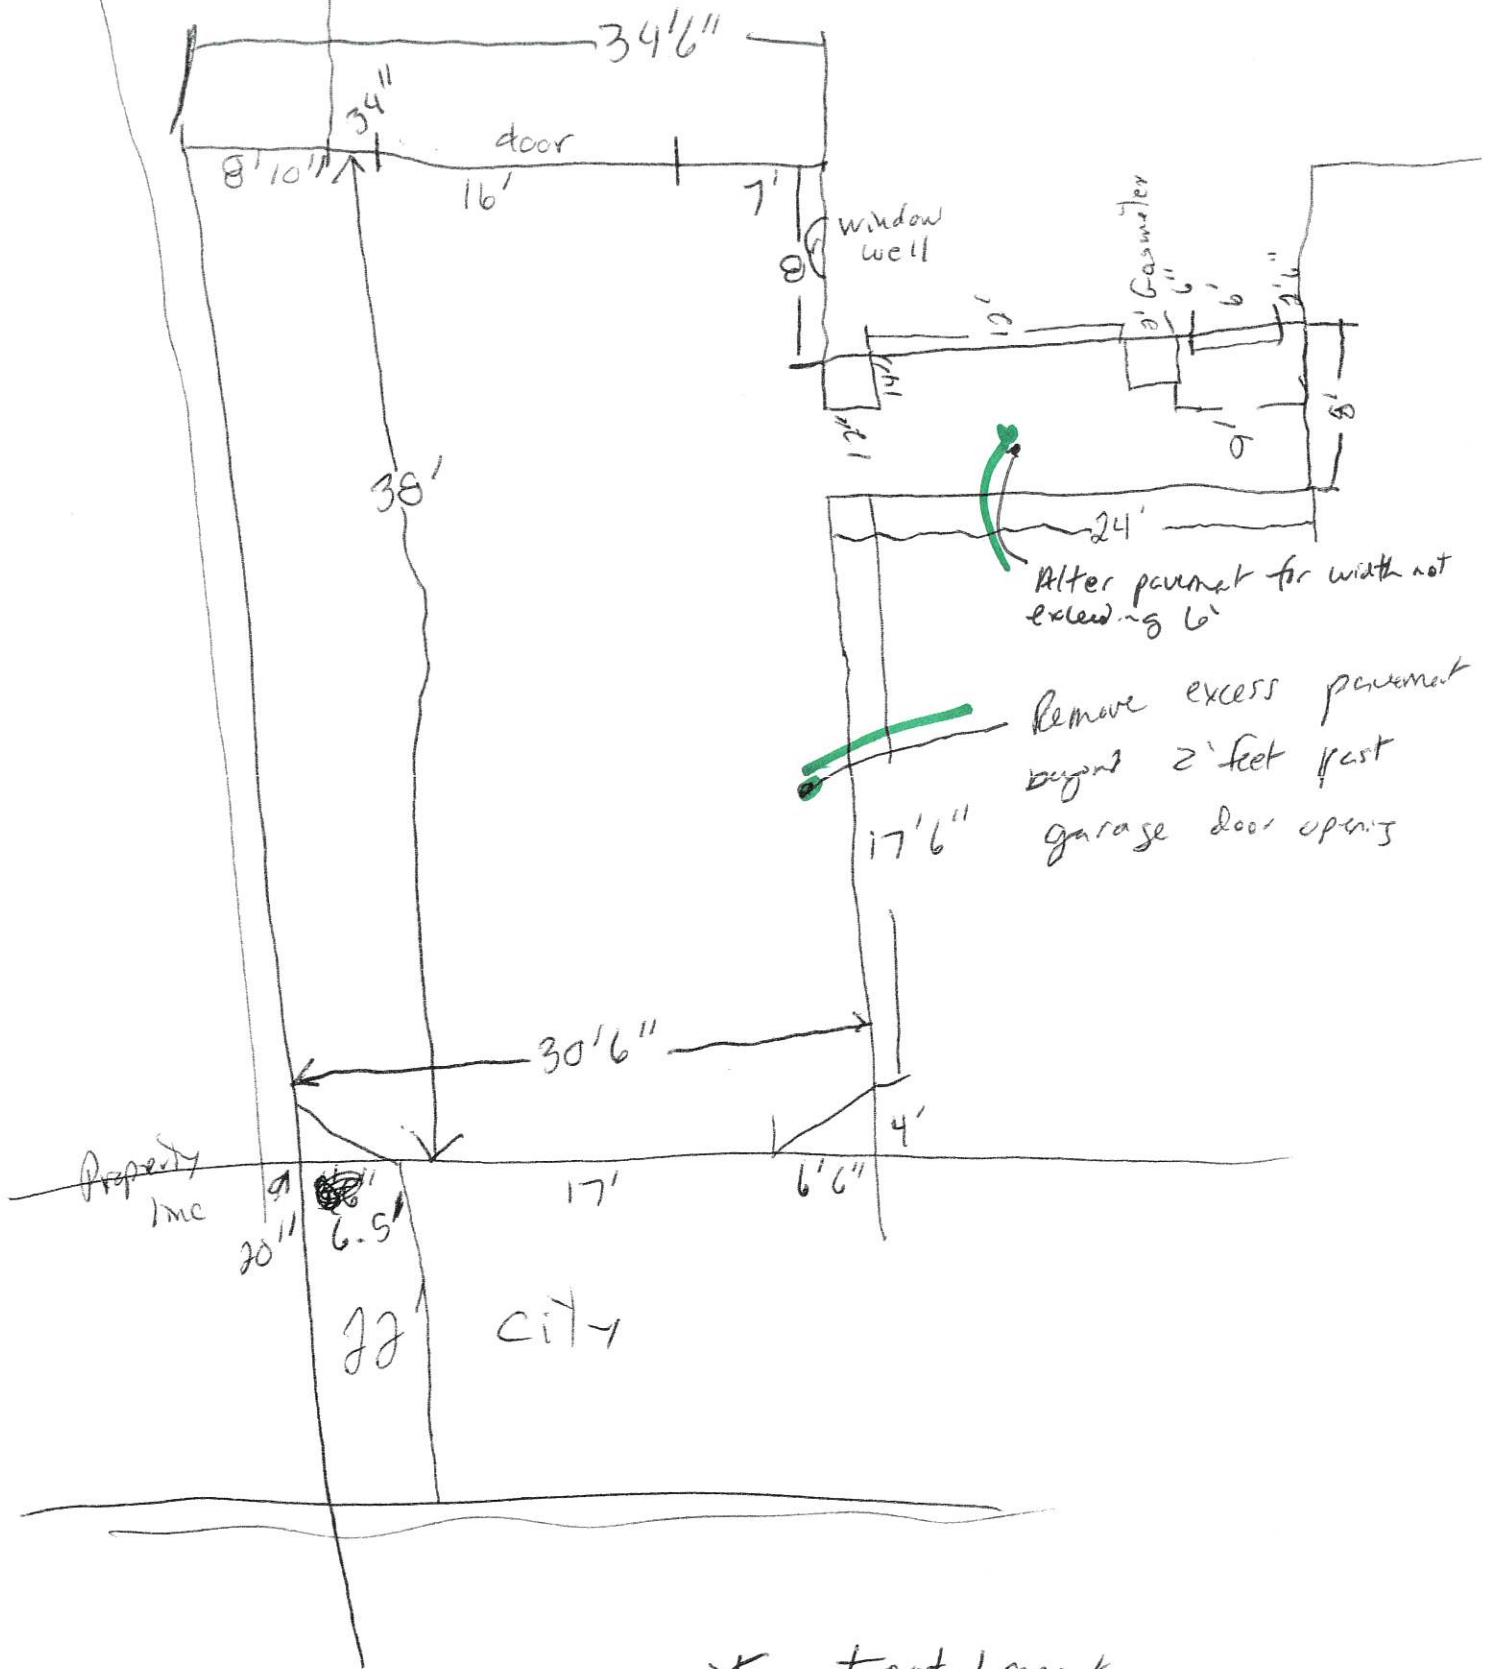 34'6"
34"
door
8'10"
16'
7'
window
well
8
Gasmeter
12'
2'
6"
6'
2'6"
14"
12"
9'
8'
38'
24'
Alter pavement for width not
exceeding 6'
Remove excess pavement
beyond 2' feet past
garage door opening
17'6"
30'6"
4'
Property
line
17'
6'6"
20"
6.5'
22'
City